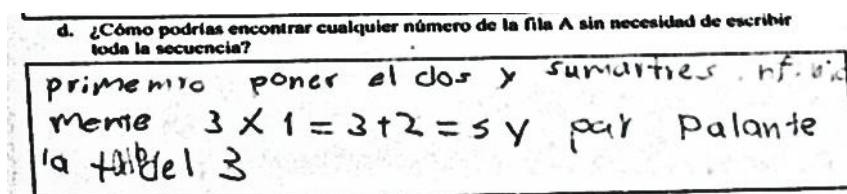 d. ¿Cómo podrías encontrar cualquier número de la fila A sin necesidad de escribir
toda la secuencia?
primemro poner el dos y sumartres
mente 3 X 1 = 3+2 = 5 y par Palante
la del 3